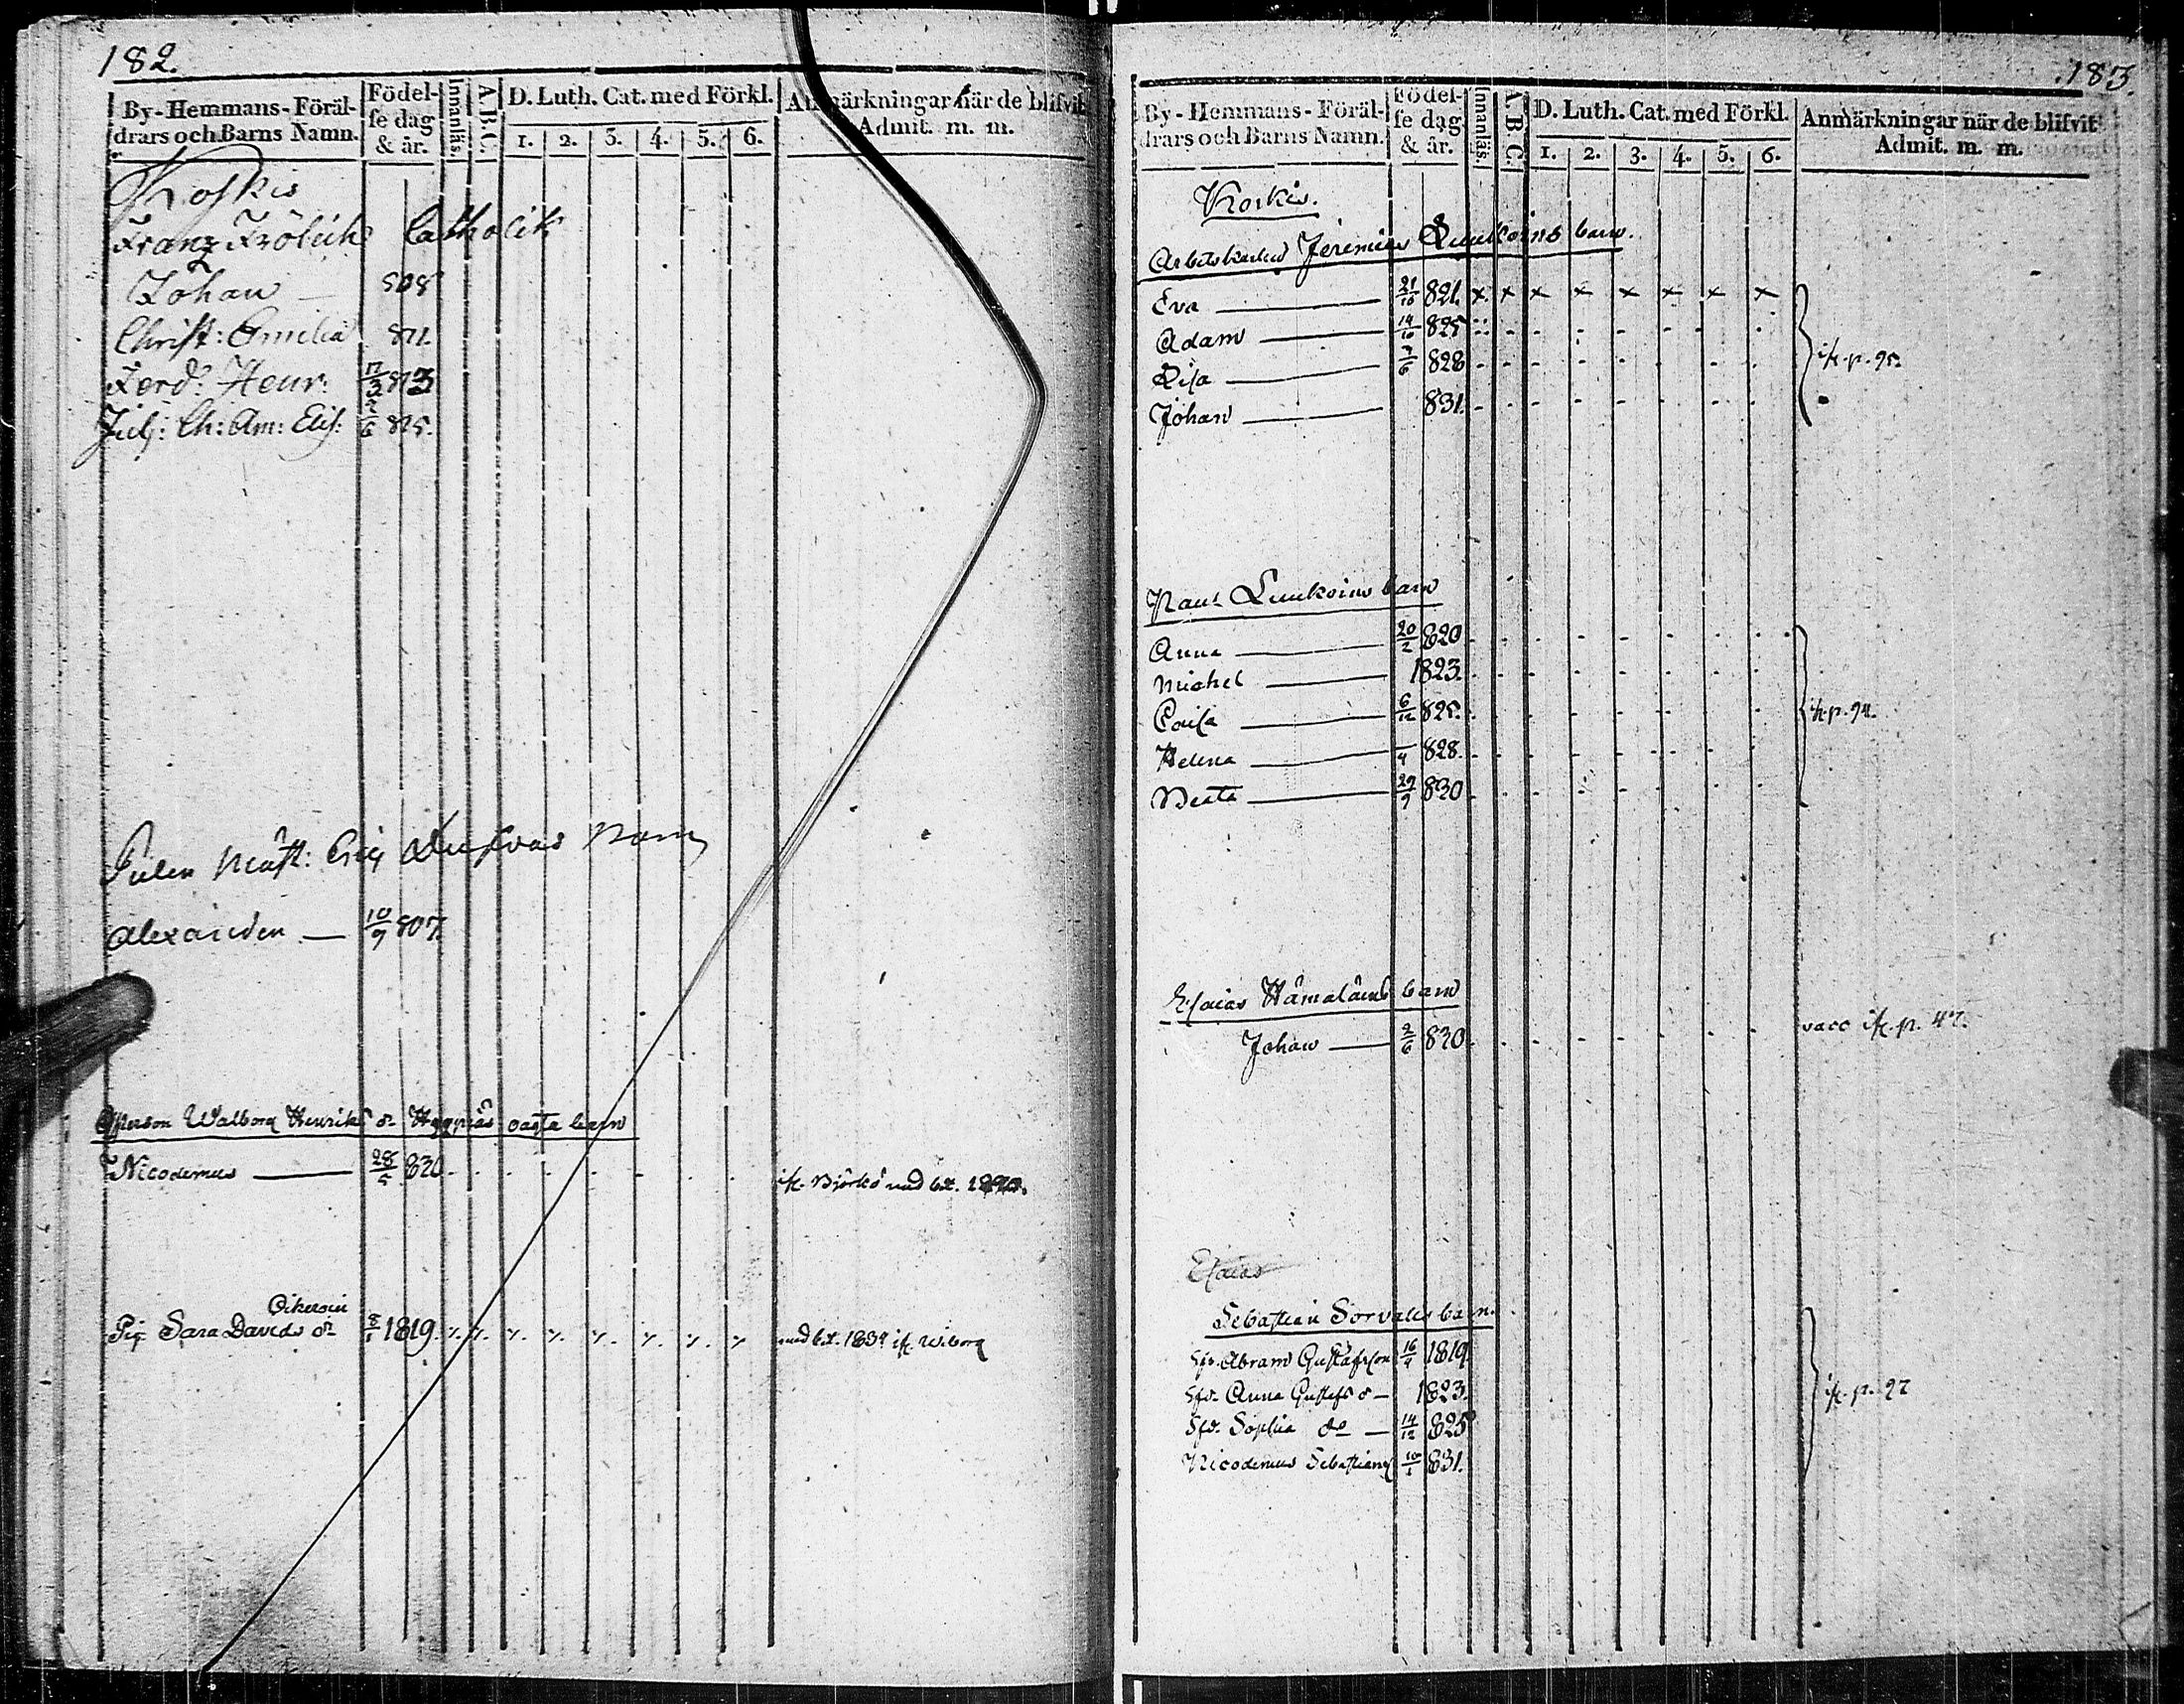 182.
By-Hemmans-Föräl-
drars och Barns Namn.
Födel-
se dag
& år.
Innanläs.
A.B.C.
D. Luth. Cat. med Förkl.
1. 2. 3. 4. 5. 6.
Anmärkningar när de blifvit
Admit. m. m.
Koskis
Franz Frölichs Catholik
Johan — 808
Christ: Emilia 811.
Ferd: Henr: 17/3 813
Julj: Ch: Am: Elis: 6 815.
Mäst: Barn
Alexander — 10/9 807.
Walborg Henriks dr oägta barn
Nicodemus — 28/5 830
ifr. Björkö med bet.
Oikeroin
Pig. Sara Davids dr 8/1 1819.
med bet. 1839 ifr. Wiborg
183.
By-Hemmans-Föräl-
drars och Barns Namn.
Födel-
se dag
& år.
Innanläs.
A.B.C.
D. Luth. Cat. med Förkl.
1. 2. 3. 4. 5. 6.
Anmärkningar när de blifvit
Admit. m. m.
Koskis.
Arbetskarlen Jeremias Luukoins barn.
Eva — 21/10 821. x x x x x x x x
Adam — 14/10 825
Lisa — 7/6 828
ifr. p. 95.
Johan — 831.
Paul Luukoins barn
Anna — 20/2 820
Michel — 1823.
Caisa — 6/12 825.
ifr. p. 94.
Helena — /4 828.
Beata — 29/9 830
Esaias Hämäläins barn
Johan — 2/6 830
vacc ifr. p. 47.
Esaias
Sebastian Sorvalis barn.
Sfs. Abram Gustafsson 16/4 1819
Sfd. Anna Gustafs d — 1823.
ifr. p. 97
Sfd. Sophia do — 14/12 825
Nicodemus Sebastians 10/1 831.